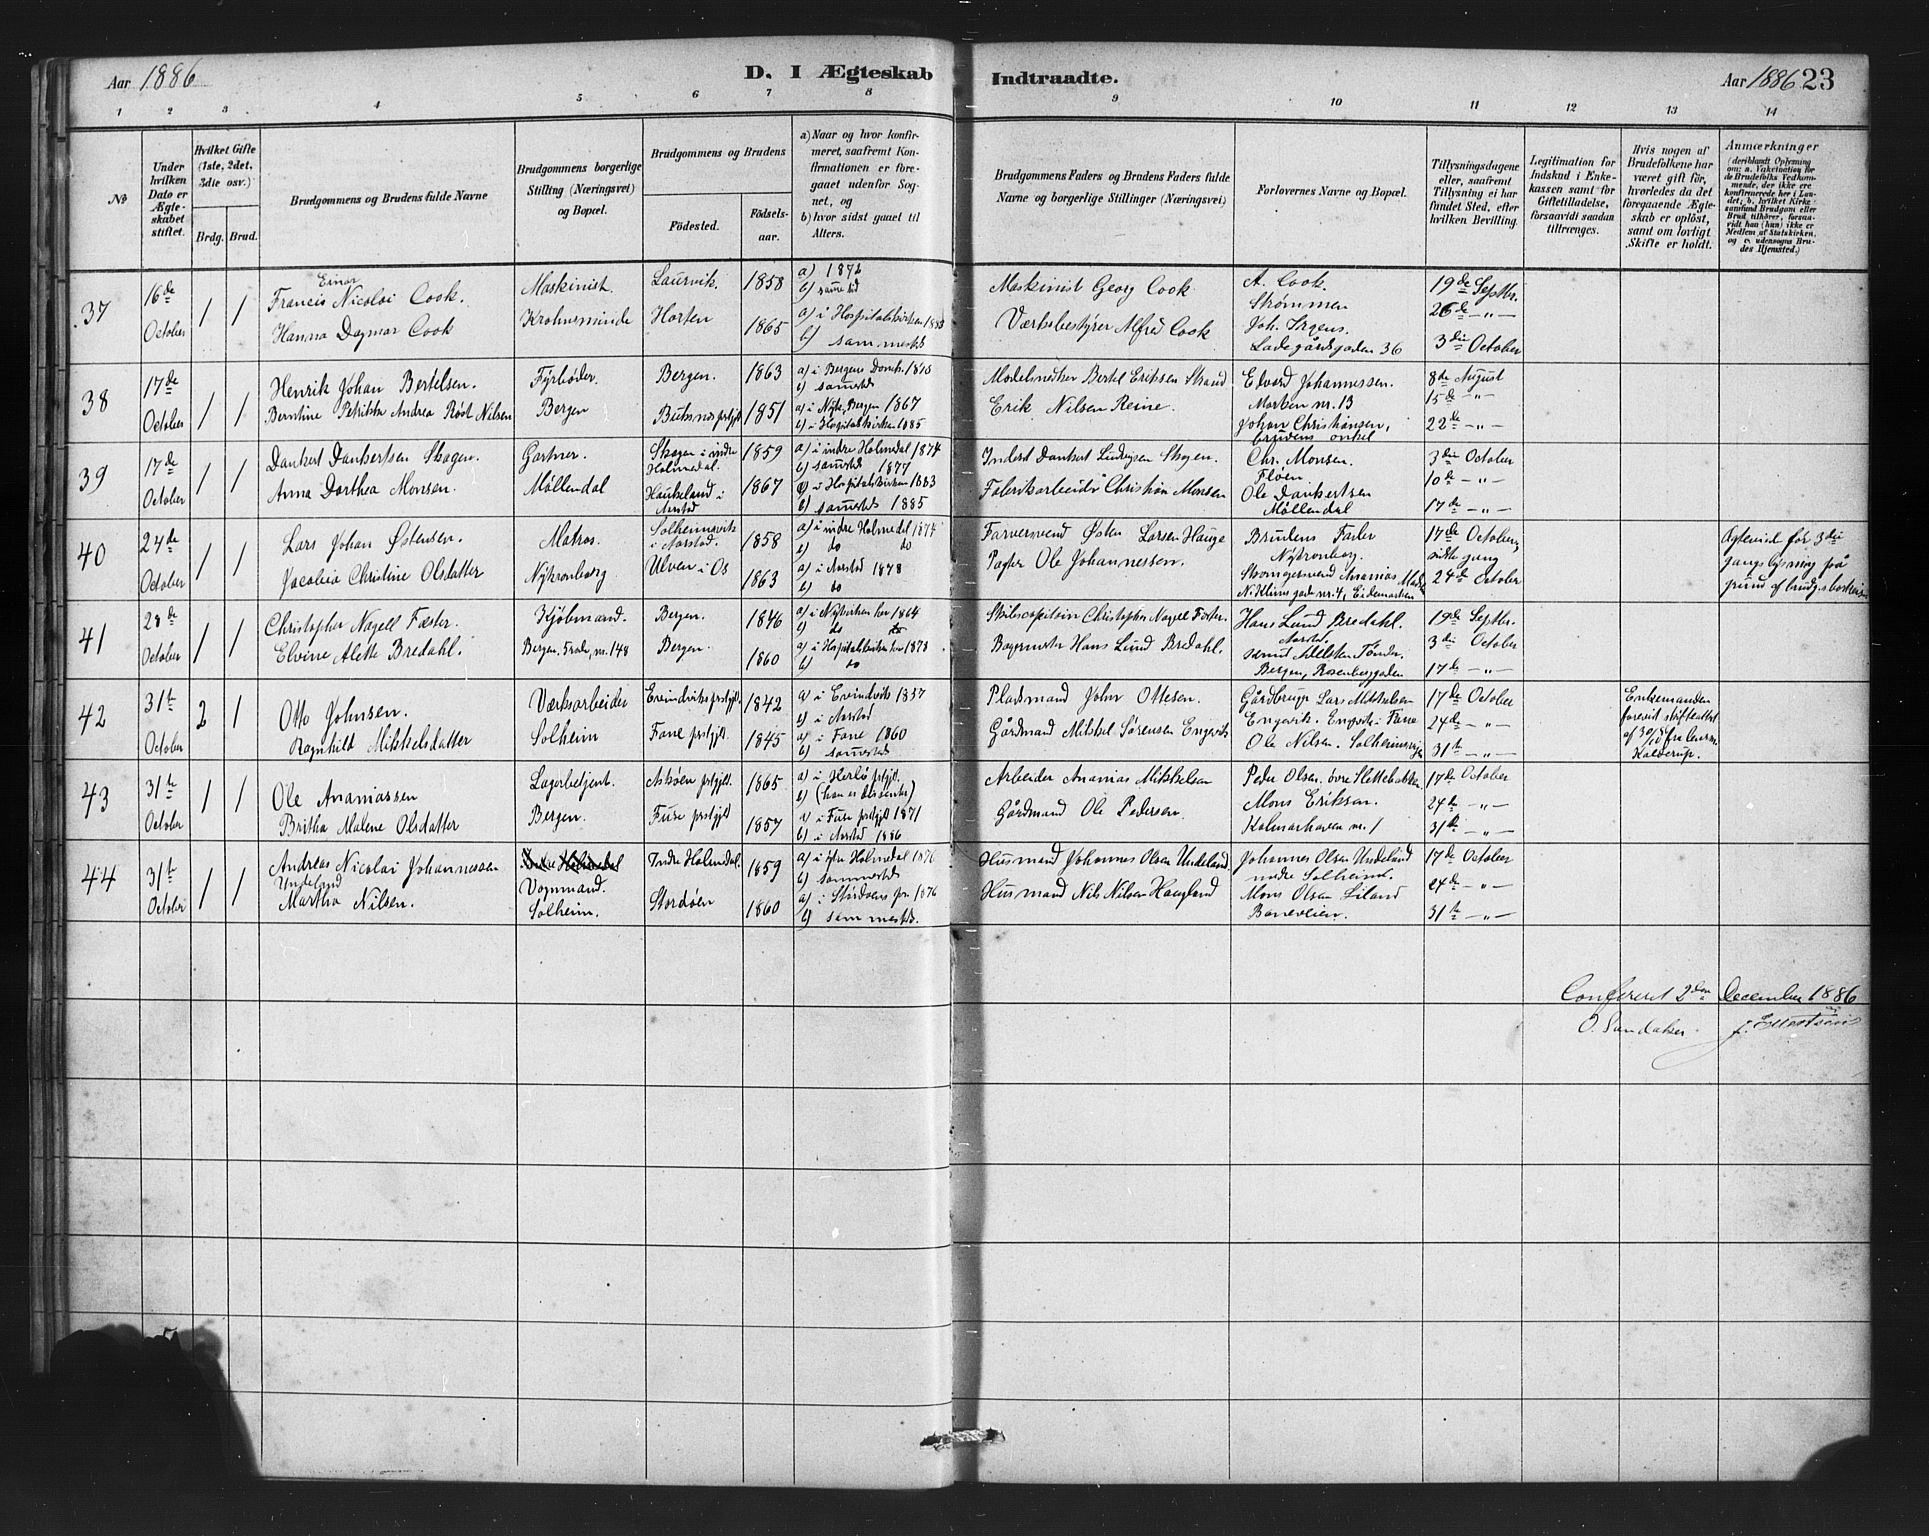 Aar 1886
D. I Ægteskab
Indtraadte.
Aar 1886 23
1 2 3 4 5 6 7 8 9 10 11 12 13 14
No
Under hvilken Dato er Ægteskabet stiftet.
Hvilket Gifte (1ste, 2det, 3die osv.)
Brdg. Brud.
Brudgommens og Brudens fulde Navne
Brudgommens borgerlige Stilling (Næringsvei) og Bopæl.
Brudgommens og Brudens
Födested.
Födsels-aar.
a) Naar og hvor konfirmeret, saafremt Konfirmationen er foregaaet udenfor Sognet, og
b) hvor sidst gaaet til Alters.
Brudgommens Faders og Brudens Faders fulde Navne og borgerlige Stillinger (Næringsvei)
Forlovernes Navne og Bopæl.
Tillysningsdagene eller, saafremt Tillysning ei har fundet Sted, efter hvilken Bevilling.
Legitimation for Indskud i Enkekassen samt for Giftetilladelse, forsaavidt saadan tiltrænges.
Hvis nogen af Brudefolkene har været gift før, hvorledes da det foregaaende Ægteskab er opløst, samt om lovligt Skifte er holdt.
Anmærkninger
37 16de October 1 1
Einar
Francis Nicolai Cook.
Hanna Dagmar Cook
Maskinist.
Krohnsminde
Laurvik. 1858
Horten 1865
a) 1872
b) samested
a) i Hospitalskirken 1880
b) sammesteds
Maskinist Georg Cook
Værksbestyrer Alfred Cook
A. Cook
Strømmen
Joh. Irgens.
Ladegårdsgaden 36
19de Septbr.
26de -"-
3die October
38 17de October 1 1
Henrik Johan Bertelsen.
Berntine Petrikka Andrea Røst Nilsen
Fyrbøder.
Bergen
Bergen. 1863
Buksnæs prstgjld 1851
b) samesteds
a) i Nykr. Bergen 1867
b) i Hospitalskirken 1885
Modelsnedker Bertel Eriksen Strand
Erik Nilsen Reine.
Edvard Johannessen.
Marken nr. 13
Johan Christiansen,
Brudens onkel
8de August
15de -"-
22de -"-
39 17de October 1 1
Dankert Dankertsen Skogen.
Anna Dorthea Monsen.
Gartner.
Møllendal
Skogen i indre Holmedal. 1859
Haukeland i Aarstad 1867
a) i indre Holmedal 1874
b) samesteds 1877
a) i Hospitalskirken 1883
b) samesteds 1885
Inderst Dankert Ludvigsen Skogen.
Fabrikarbeider Christian Monsen
Chr. Monsen.
Fløen.
Ole Dankertsen
Møllendal
3die October
10de -"-
17de -"-
40 24de October 1 1
Lars Johan Østensen.
Jacobia Christine Olsdatter
Matros.
Nykronborg
Solheimsvik i Aarstad. 1858
Ulven i Os 1863
a) i indre Holmedal 1874
b) do do
a) i Aarstad 1878
b) do
Farversvend Østen Larsen Hauge
Pagter Ole Johannessen.
Brudens Fader
Nykronborg.
17de October,
sidste gang
24de October
Ægteviet før 3die
gangs lysning på
grund af brudg.s bortreise
41 28de October 1 1
Christopher Nagell Fæster.
Elvine Alette Bredahl.
Kjøbmand.
Bergen nr. 148
Bergen. 1846
Bergen. 1860
a) i Nykirken her 1864
b) do do
a) i Hospitalskirken her 1878
b) do
Skibscapitain Christopher Nagell Fæster.
Bagermester Hans Lund Bredahl.
Hans Lund Bredahl.
Aarstad.
Bergen, Rosenberggaden
19de Septbr.
3die October
17de -"-
42 31te October 2 1
Otto Johnsen.
Ragnhild Mikkelsdatter
Værksarbeider
Solheim
Evindviks prstgjld. 1842
Fane prstgjld. 1845
a) i Evindvik 1857
b) i Aarstad
a) i Fane 1860
b) samesteds
Pladsmand John Ottesen.
Gårdmand Mikkel Sørensen Engevik
Gårdbruger Lars Mikkelsen
Engevik. Engevik i Fane
Ole Nilsen. Solheimsvigen
17de October
24de -"-
31te -"-
Enkemanden
forevist skifteattest
43 31te October 1 1
Ole Ananiassen
Britha Malene Olsdatter
Lagerbetjent.
Bergen.
Askøen prstgjld. 1865
Fuse prstgjld 1857
a) i Herlø prstgjld.
b) (han er dissenter)
a) i Fuse prstgjld 1871
b) i Aarstad 1886
Arbeider Ananias Mikkelsen
Gårdmand Ole Pedersen.
Peder Olsen. øvre Slettebakken
Mons Eriksen.
Kalmarhaven nr. 1
17de October
24de -"-
31te -"-
44 31te October 1 1
Andreas Nicolai Johannessen
Undeland
Martha Nilsen.
Indre Holmedal
Vognmand.
Solheim.
Indre Holmedal. 1859
Stordøen 1860
a) i ytre Holmedal 1876
b) sammesteds
a) i Stordøens pr. 1876
b) sammesteds.
Husmand Johannes Olsen Undeland.
Husmand Nils Nilsen Haugland
Johannes Olsen Undeland
nedre Solheim.
Mons Olsen Liland
Baneveien.
17de October
24de -"-
31te -"-
Confereret 2den December 1886
O. Sandaker